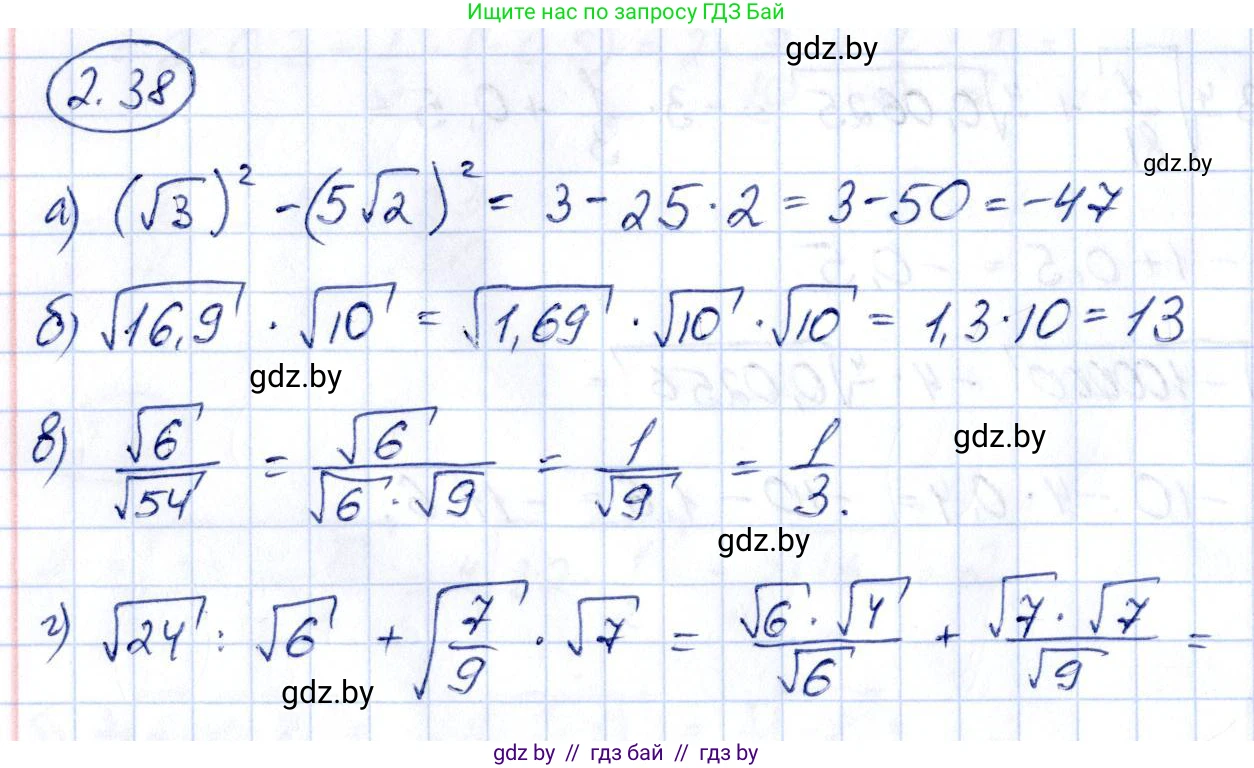 Ищите нас по запросу ГДЗ Бай
gdz.by
2.38
gdz.by
а) (√3)² - (5√2)² = 3 - 25 · 2 = 3 - 50 = -47
б) √16,9 · √10 = √1,69 · √10 · √10 = 1,3 · 10 = 13
gdz.by
в) √6/√54 = √6/(√6 · √9) = 1/√9 = 1/3.
gdz.by
gdz.by
г) √24 : √6 + √(7/9) · √7 = (√6 · √4)/√6 + (√7 · √7)/√9 =
gdz.by
gdz by // гдз бай // гдз by